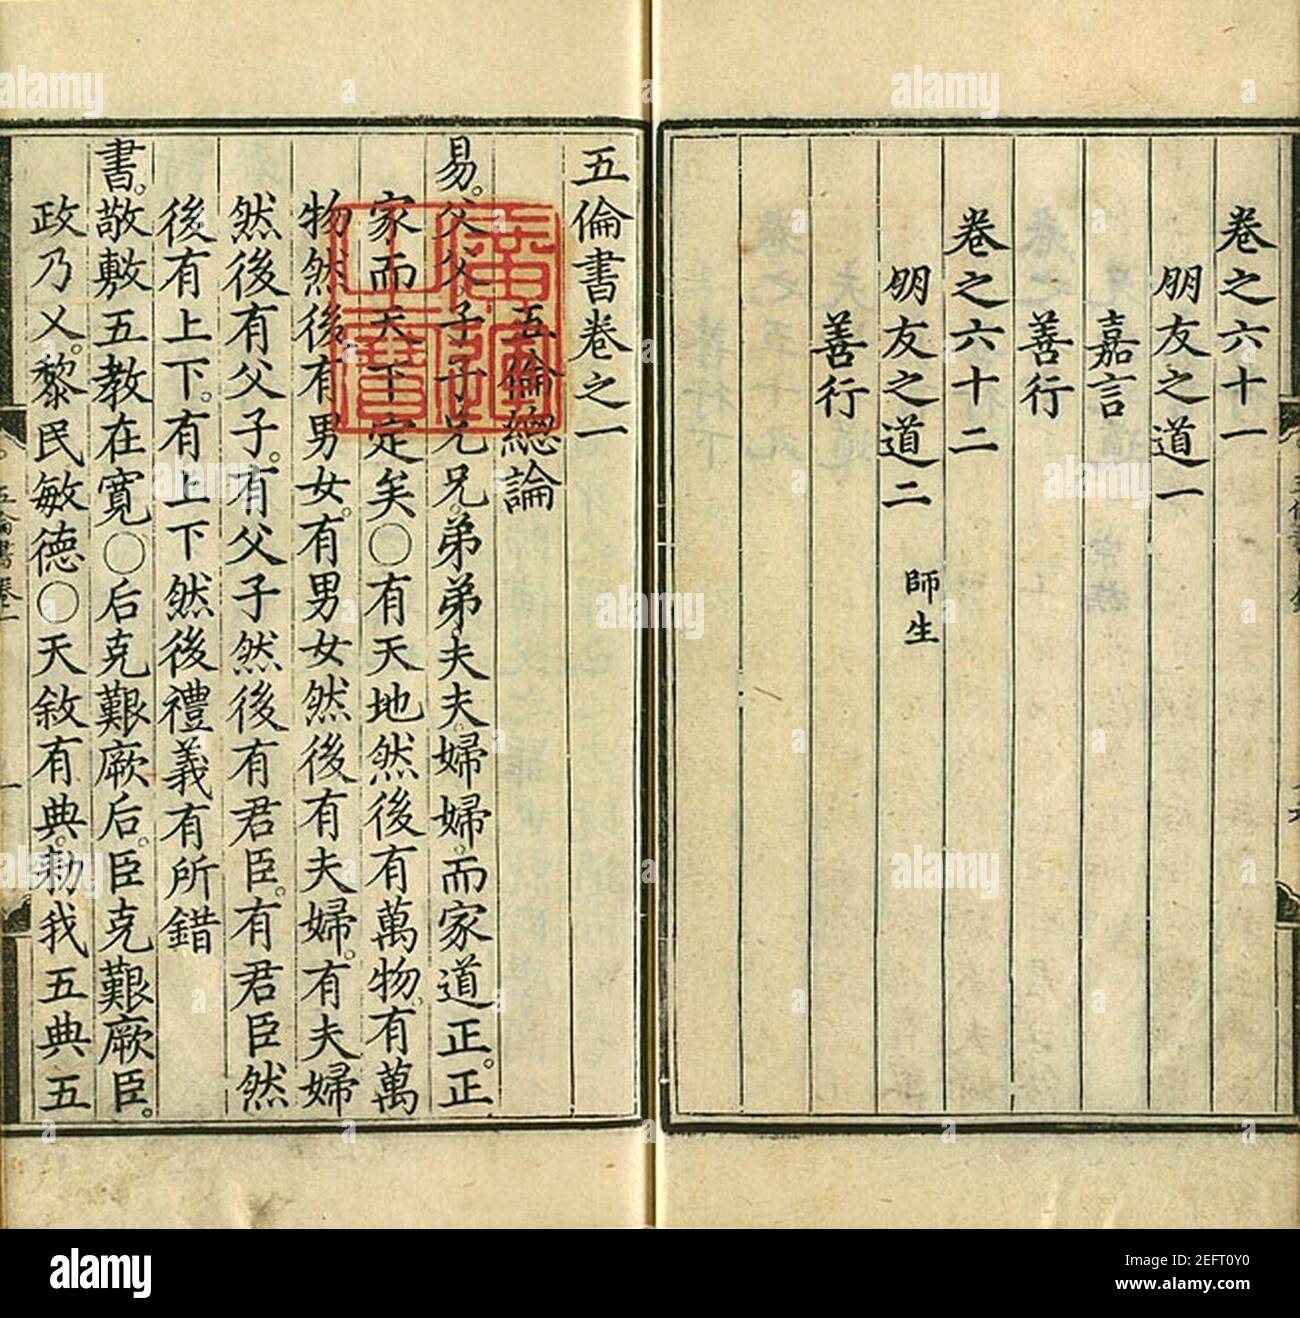 卷之六十一
朋友之道一
嘉言
善行
卷之六十二
朋友之道二 師生
善行
五倫書卷之一
五倫總論
易。父父。子子。兄兄。弟弟。夫夫。婦婦。而家道正。正
家而天下定矣○有天地然後有萬物。有萬
物然後有男女。有男女然後有夫婦。有夫婦
然後有父子。有父子然後有君臣。有君臣然
後有上下。有上下然後禮義有所錯
書。敬敷五教在寬○后克艱厥后。臣克艱厥臣。
政乃乂。黎民敏德○天敘有典。勑我五典五
五倫書卷一
一
廣運之寶
alamy
a
Image ID: 2EFT0Y0
www.alamy.com